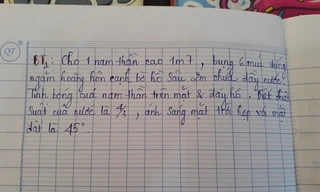 BT1: Cho 1 nam thần cao 1m7, bụng 6 múi đứng
ngắm hoàng hôn cạnh bờ hồ sâu 2m chứa đầy nước.
Tính bóng của nam thần trên mặt & đáy hồ. Biết chiết
suất của nước là 4/3, ánh sáng mặt trời hợp với mặt
đất là 45°.